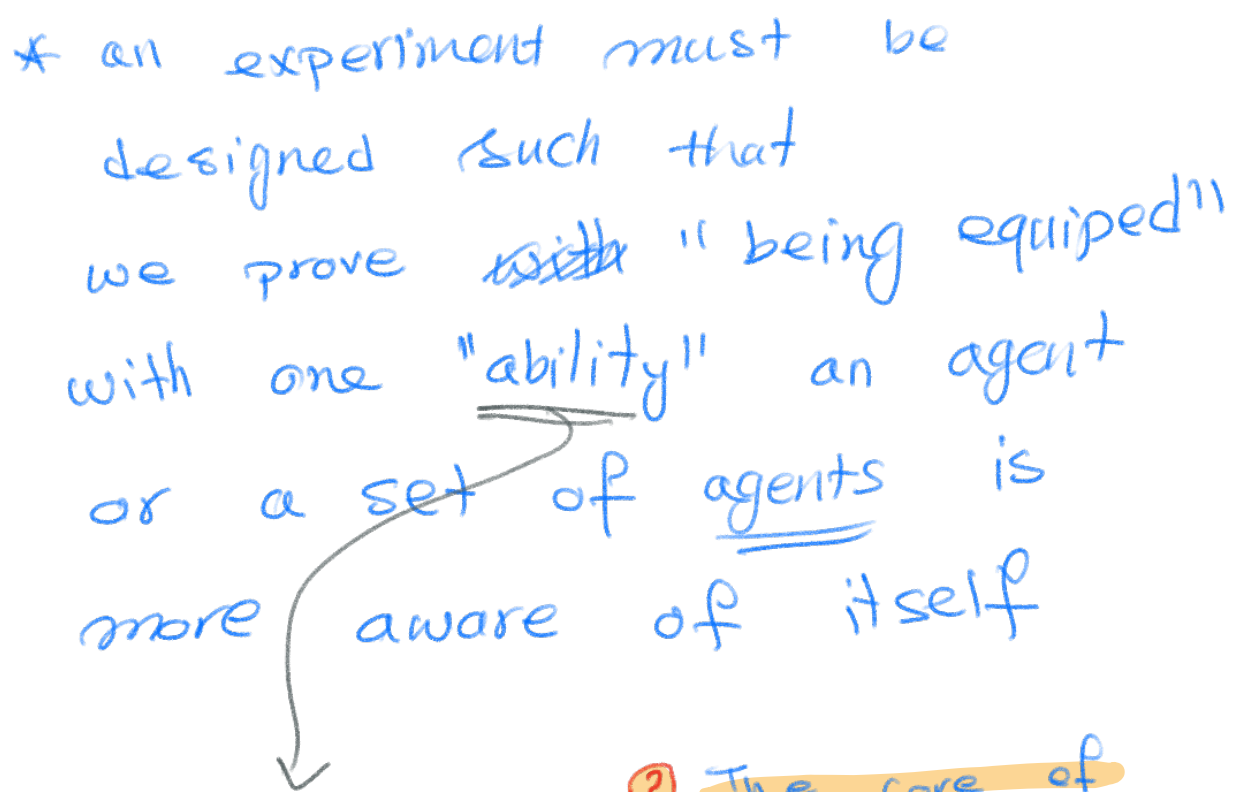 * an experiment must be
designed such that
we prove with "being equiped"
with one "ability" an agent
or a set of agents is
more aware of itself
? The core of